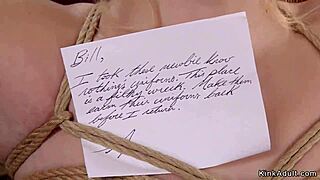 Bill,
I took these newbie know
nothings uniforms. This place
is a filthy wreck. Make them
earn their uniforms back
before I return.
KinkAdult.com